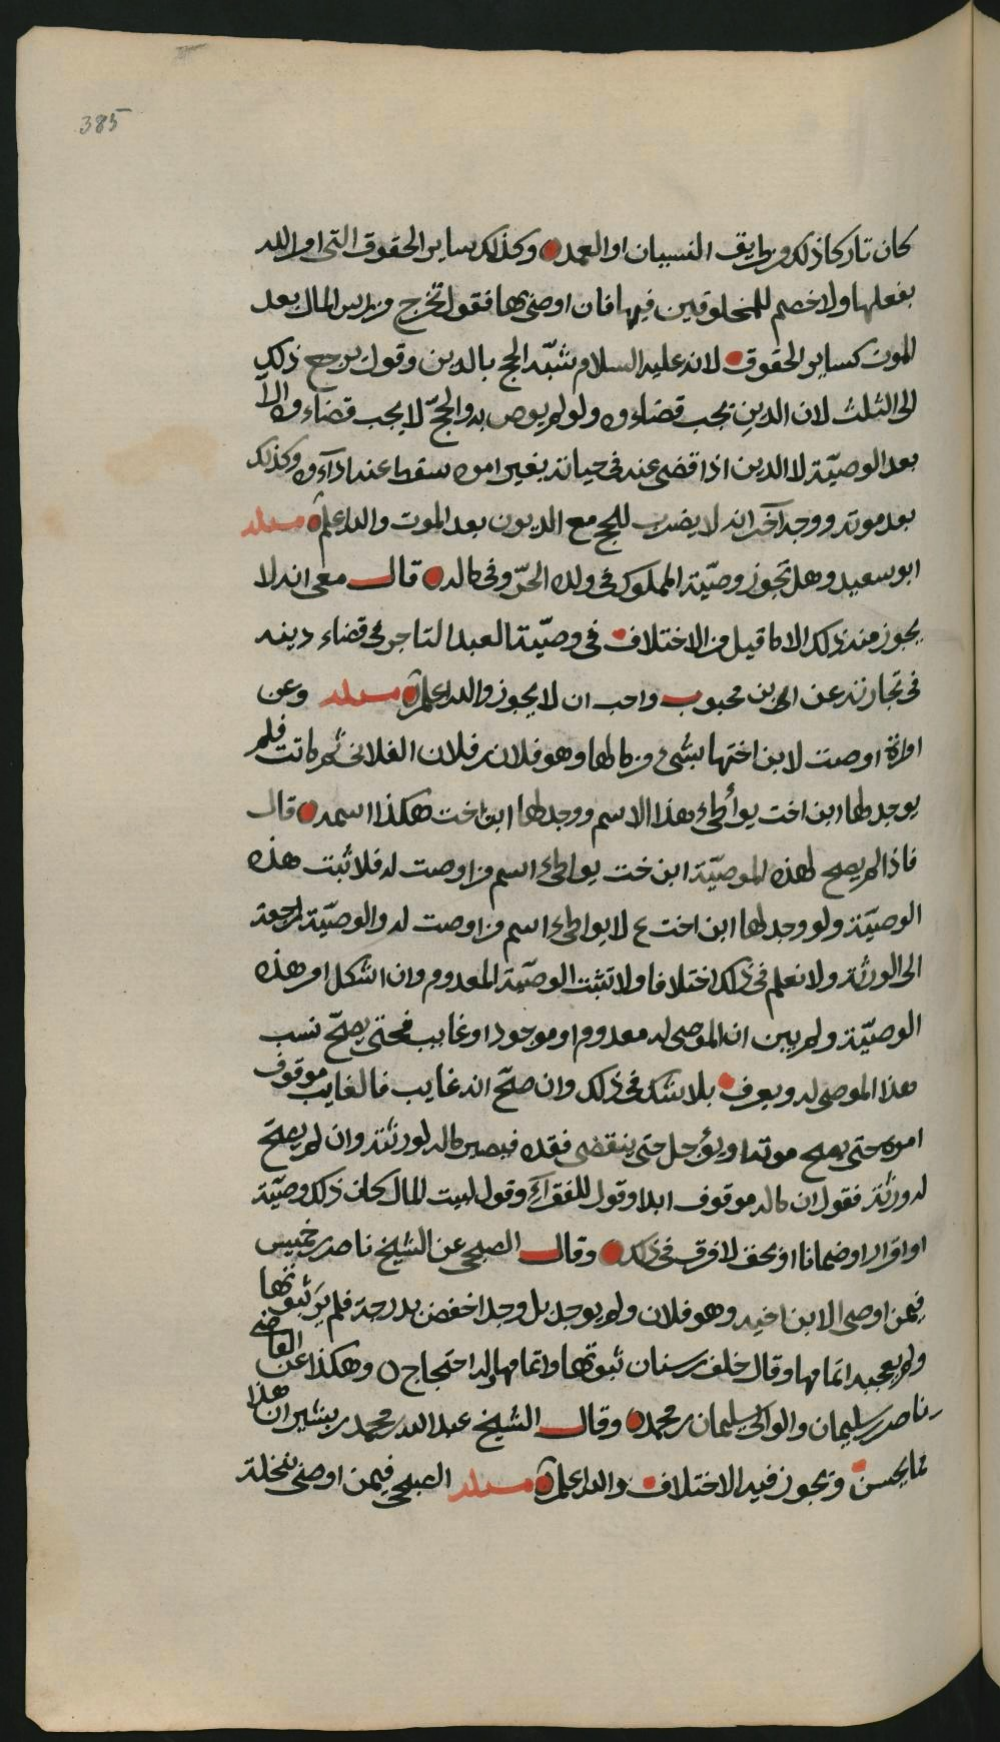 385
كان تاركا ذلك من طريق النسيان او العمد وكذلك ساير الحقوق التي امر الله
بفعلها ولا خصم للمخلوقين فيها فان اوصى بها فقول تخرج من راس المال بعد
الموت كساير الحقوق لانه عليه السلام شبّه الحج بالدين وقول يرجع ذلك
الى الثلث لان الدين يجب قضاءه ولو لم يوص به والحجّ لا يجب قضاءه الّا
بعد الوصيّة لا الدين اذا قضى عنه في حياته بغير امره سقط عند ادآءه وكذلك
بعد موته ووجد آخر انه لا يضرب للحج مع الديون بعد الموت والله اعلم مسئلة
ابو سعيد وهل تجوز وصيّة المملوك في ولده الحرّ وفي ماله قال معي انه لا
يجوز منه ذلك الا ما قيل من الاختلاف في وصيّة العبد التاجر في قضاء دينه
في تجارته عن ابن محبوب واحب ان لا يجوز والله اعلم مسئلة وعن
امراة اوصت لابن اختها بشيء من مالها وهو فلان بن فلان الفلاني ثم ماتت فلم
يوجد لها ابن اخت يواطيء هذا الاسم ووجد لها ابن اخت هكذا اسمه قال
فاذا لم يصح لهذه الموصيّة ابن خت يواطيء اسم من اوصت له فلا ثبت هذه
الوصيّة ولو وجد لها ابن اخت لا يواطيء اسم من اوصت له والوصيّة راجعة
الى الورثة ولا نعلم في ذلك اختلافا ولا تثبت الوصيّة المعدوم وان اشكل امر هذه
الوصيّة ولم يبين ان الموصى له معدوم او موجود او غايب فحتى يصحّ نسب
هذا الموصى له ويعرف بلا شك في ذلك وان صحّ انه غايب فالغايب موقوف
امره حتى يصح موته او يؤجل حتى ينقضي فقده فيصير ماله لورثته وان لم يصحّ
له ورثة فقول ان ماله موقوف ابدا وقول للفقرآء وقول لبيت المال كان ذلك وصيّة
او اقرار او ضمانا او بحق لا فرق في ذلك وقال الصبحي عن الشيخ ناصر بن خميس
فيمن اوصى لابن اخيه وهو فلان ولم يوجد بل وجد اخفض بدرجة فلم ير ثبوتها
ولم يعجبه اتمامها وقال خلف بن سنان ثبوتها واتمامها وله احتجاج وهكذا عن القاضي
ناصر بن سليمان والوالي سليمان بن محمد وقال الشيخ عبد الله بن محمد بن بشير ان هذا
مما يحسن ويجوز فيه الاختلاف والله اعلم مسئلة الصبحي فيمن اوصى بنخلة